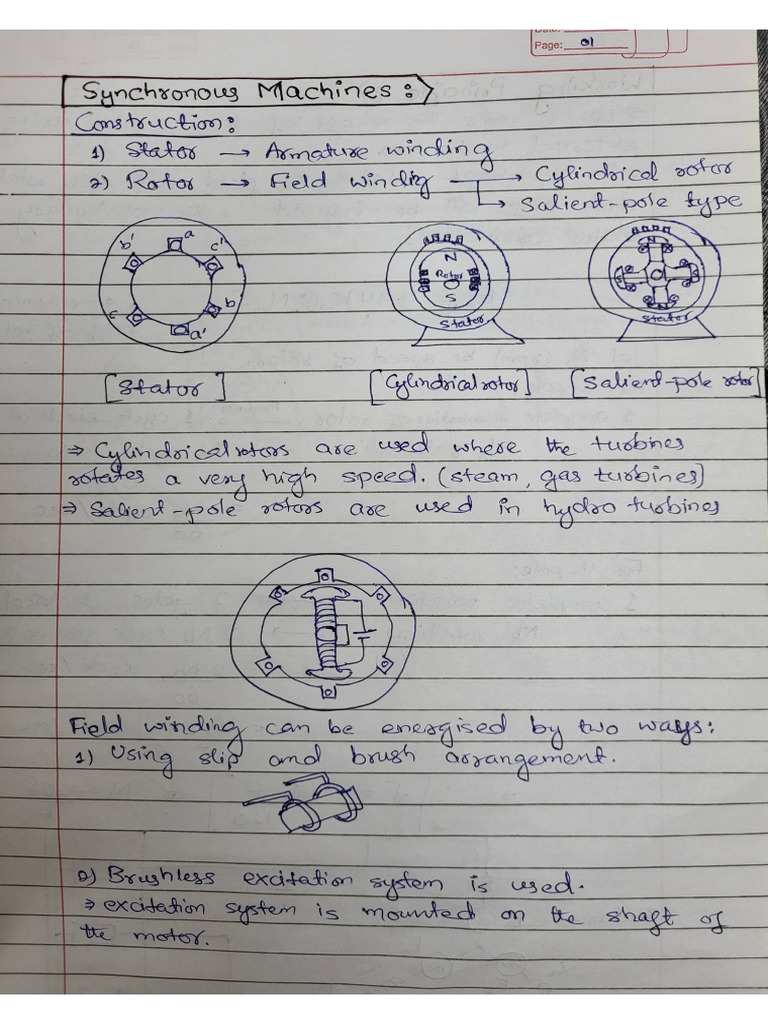 Date:
Page: 01
Synchronous Machines:
Construction:
1) Stator → Armature winding
2) Rotor → Field windig → Cylindrical rotor
→ Salient-pole type
b' a c'
c a' b
N
Rotor
S
Stator
N
Stator
[Stator] [Cylindrical rotor] [Salient-pole rotor]
⇒ Cylindrical rotors are used where the turbines
rotates a very high speed. (steam, gas turbines)
⇒ Salient-pole rotors are used in hydro turbines
Field winding can be energised by two ways:
1) Using slip and brush arrangement.
2) Brushless excitation system is used.
⇒ excitation system is mounted on the shaft of
the motor.